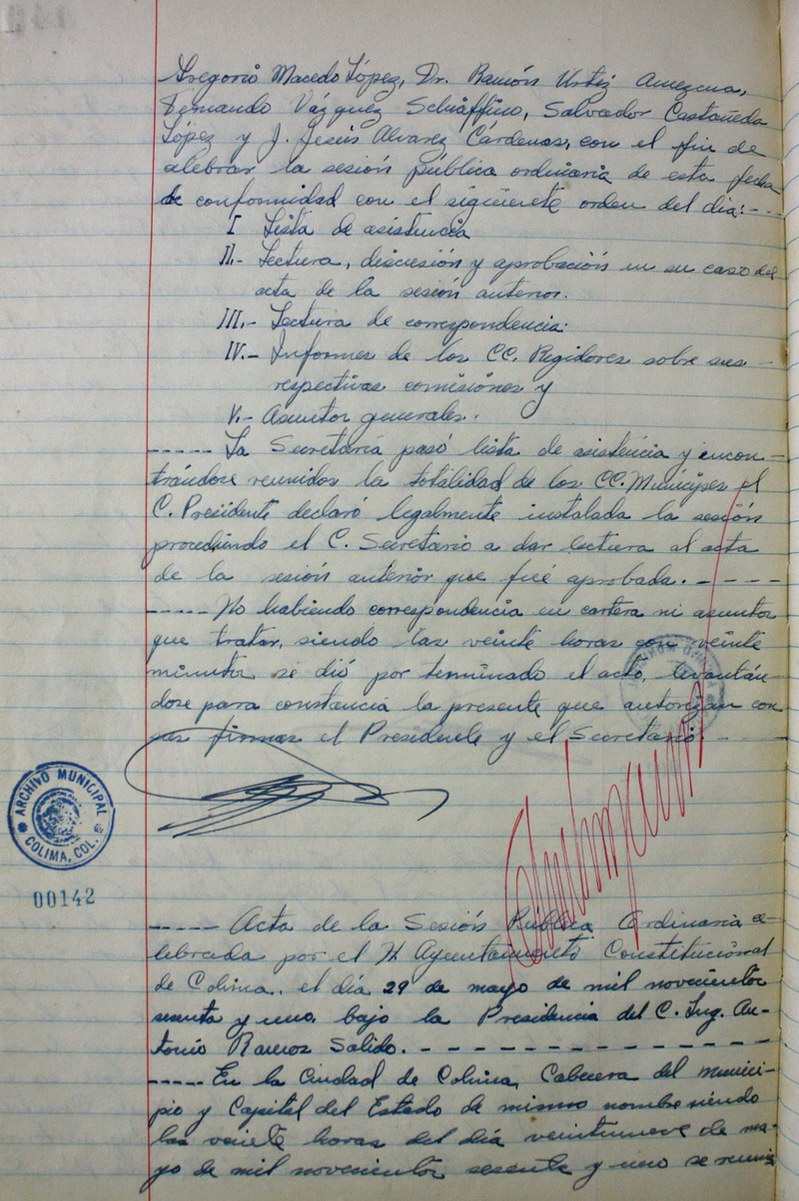 Gregorio Macedo López, Dr. Ramón Urtiz Amezcua,
Fernando Vázquez Schiaffino, Salvador Castañeda
López y J. Jesús Alvarez Cárdenas, con el fin de
celebrar la sesión pública ordinaria de esta fecha
de conformidad con el siguiente orden del día:---
I Lista de asistencia
II.- Lectura, discusión y aprobación en su caso del
acta de la sesión anterior.
III.- Lectura de correspondencia.
IV.- Informes de los CC. Regidores sobre sus
respectivas comisiones y
V.- Asuntos generales.
----- La Secretaría pasó lista de asistencia y encon-
trándose reunidos la totalidad de los CC. Munícipes el
C. Presidente declaró legalmente instalada la sesión
procediendo el C. Secretario a dar lectura al acta
de la sesión anterior que fué aprobada.----
----- No habiendo correspondencia en cartera ni asuntos
que tratar, siendo las veinte horas con veinte
minutos se dió por terminado el acto, levantán-
dose para constancia la presente que autorizan con
sus firmas el Presidente y el Secretario.----
ARCHIVO MUNICIPAL
COLIMA, COL.
00142
----- Acta de la Sesión Pública Ordinaria ce-
lebrada por el H. Ayuntamiento Constitucional
de Colima, el día 29 de mayo de mil novecientos
sesenta y uno, bajo la Presidencia del C. Ing. An-
tonio Ramos Salido.-------------
----- En la Ciudad de Colima, Cabecera del Munici-
pio y Capital del Estado de mismo nombre siendo
las veinte horas del día veintinueve de ma-
yo de mil novecientos sesenta y uno se reunie